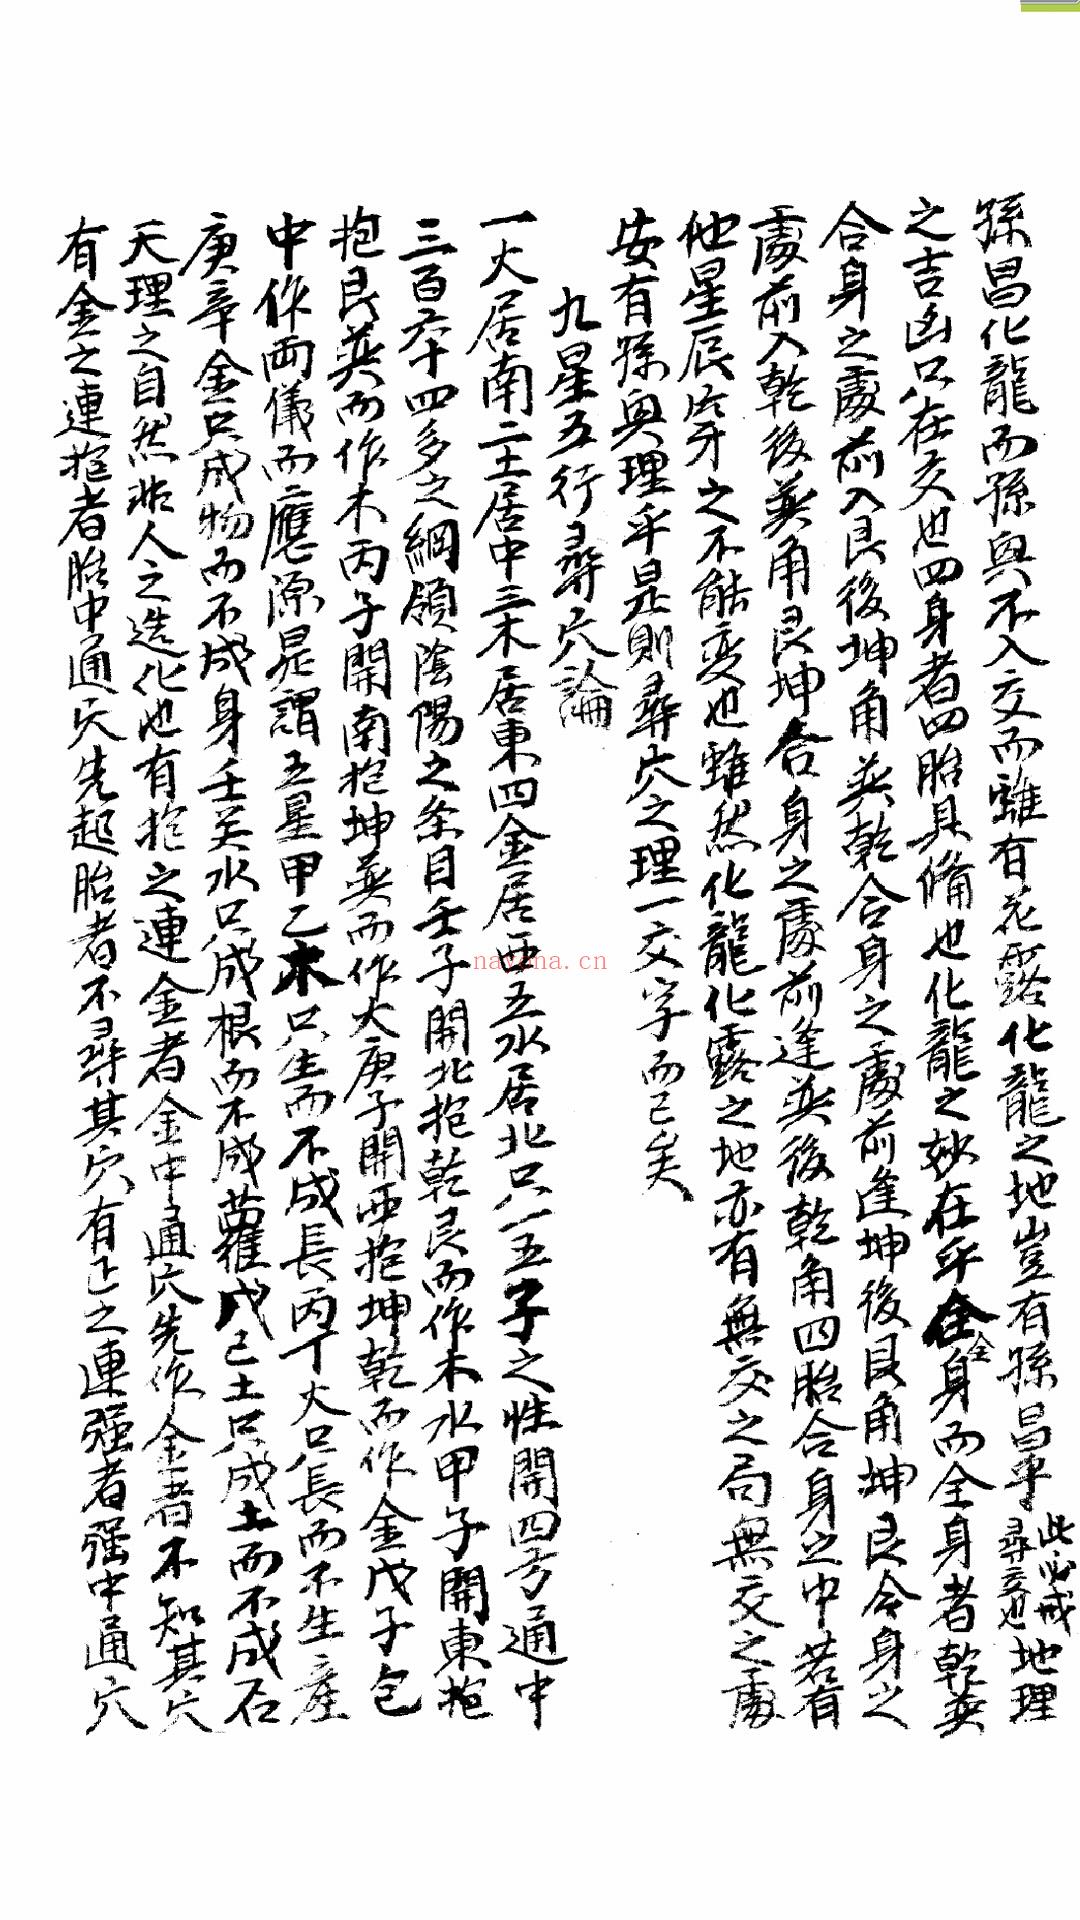 孫昌化龍而孫與不入交而雖有花露化龍之地豈有孫昌乎此必戒尋交也地理
之吉凶只在交也四身者四胎具備也化龍之妙在乎全身而全身者乾巽
合身之處前入艮後坤角巽乾合身之處前逢坤後艮角坤艮合身之
處前入乾後巽角艮坤合身之處前逢巽後乾角四胎合身之中若有
他星辰之不能变也雖然化龍化露之地亦有無交之局無交之處
安有孫與理乎是則尋穴之理一交字而已矣
九星五行尋穴論
一火居南二土居中三木居東四金居西五水居北只一五子之性開四方通中
三百六十四多之綱領陰陽之条目壬子開北抱乾艮而作木水甲子開東抱
抱艮巽而作木丙子開南抱坤巽而作火庚子開西抱坤乾而作金戊子包
中作両儀而應源是謂五星甲乙木只生而不成長丙丁火只長而不生産
庚辛金只成物而不成身壬癸水只成根而不成蘿戊己土只成土而不成石
天理之自然非人之造化也有抱之連金者金中通穴先作金者不知其穴
有金之連抱者胎中通穴先起胎者不尋其穴有之連强者强中通穴
nayona.cn